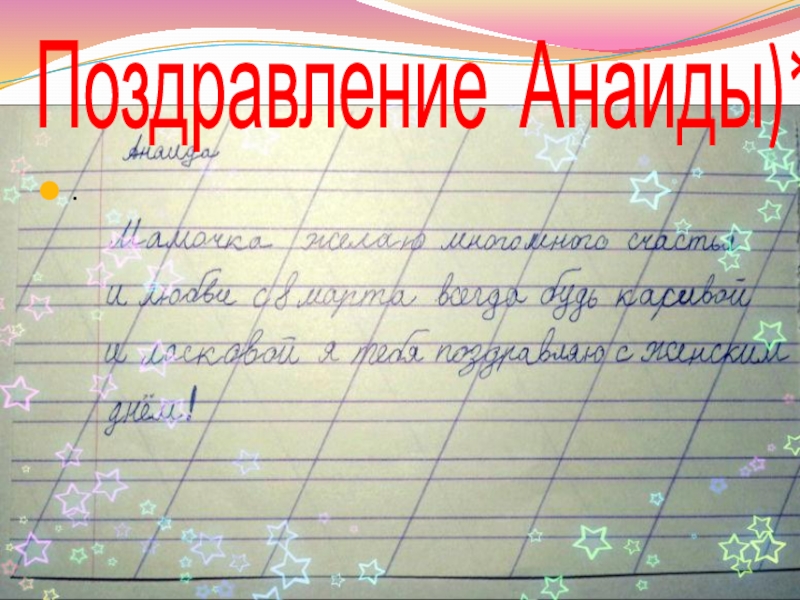 Поздравление Анаиды)*
Анаида
.
Мамочка желаю многомного счастья
и любви с 8 марта всегда будь касивой
и ласковой я тебя поздравляю с женским
днём!